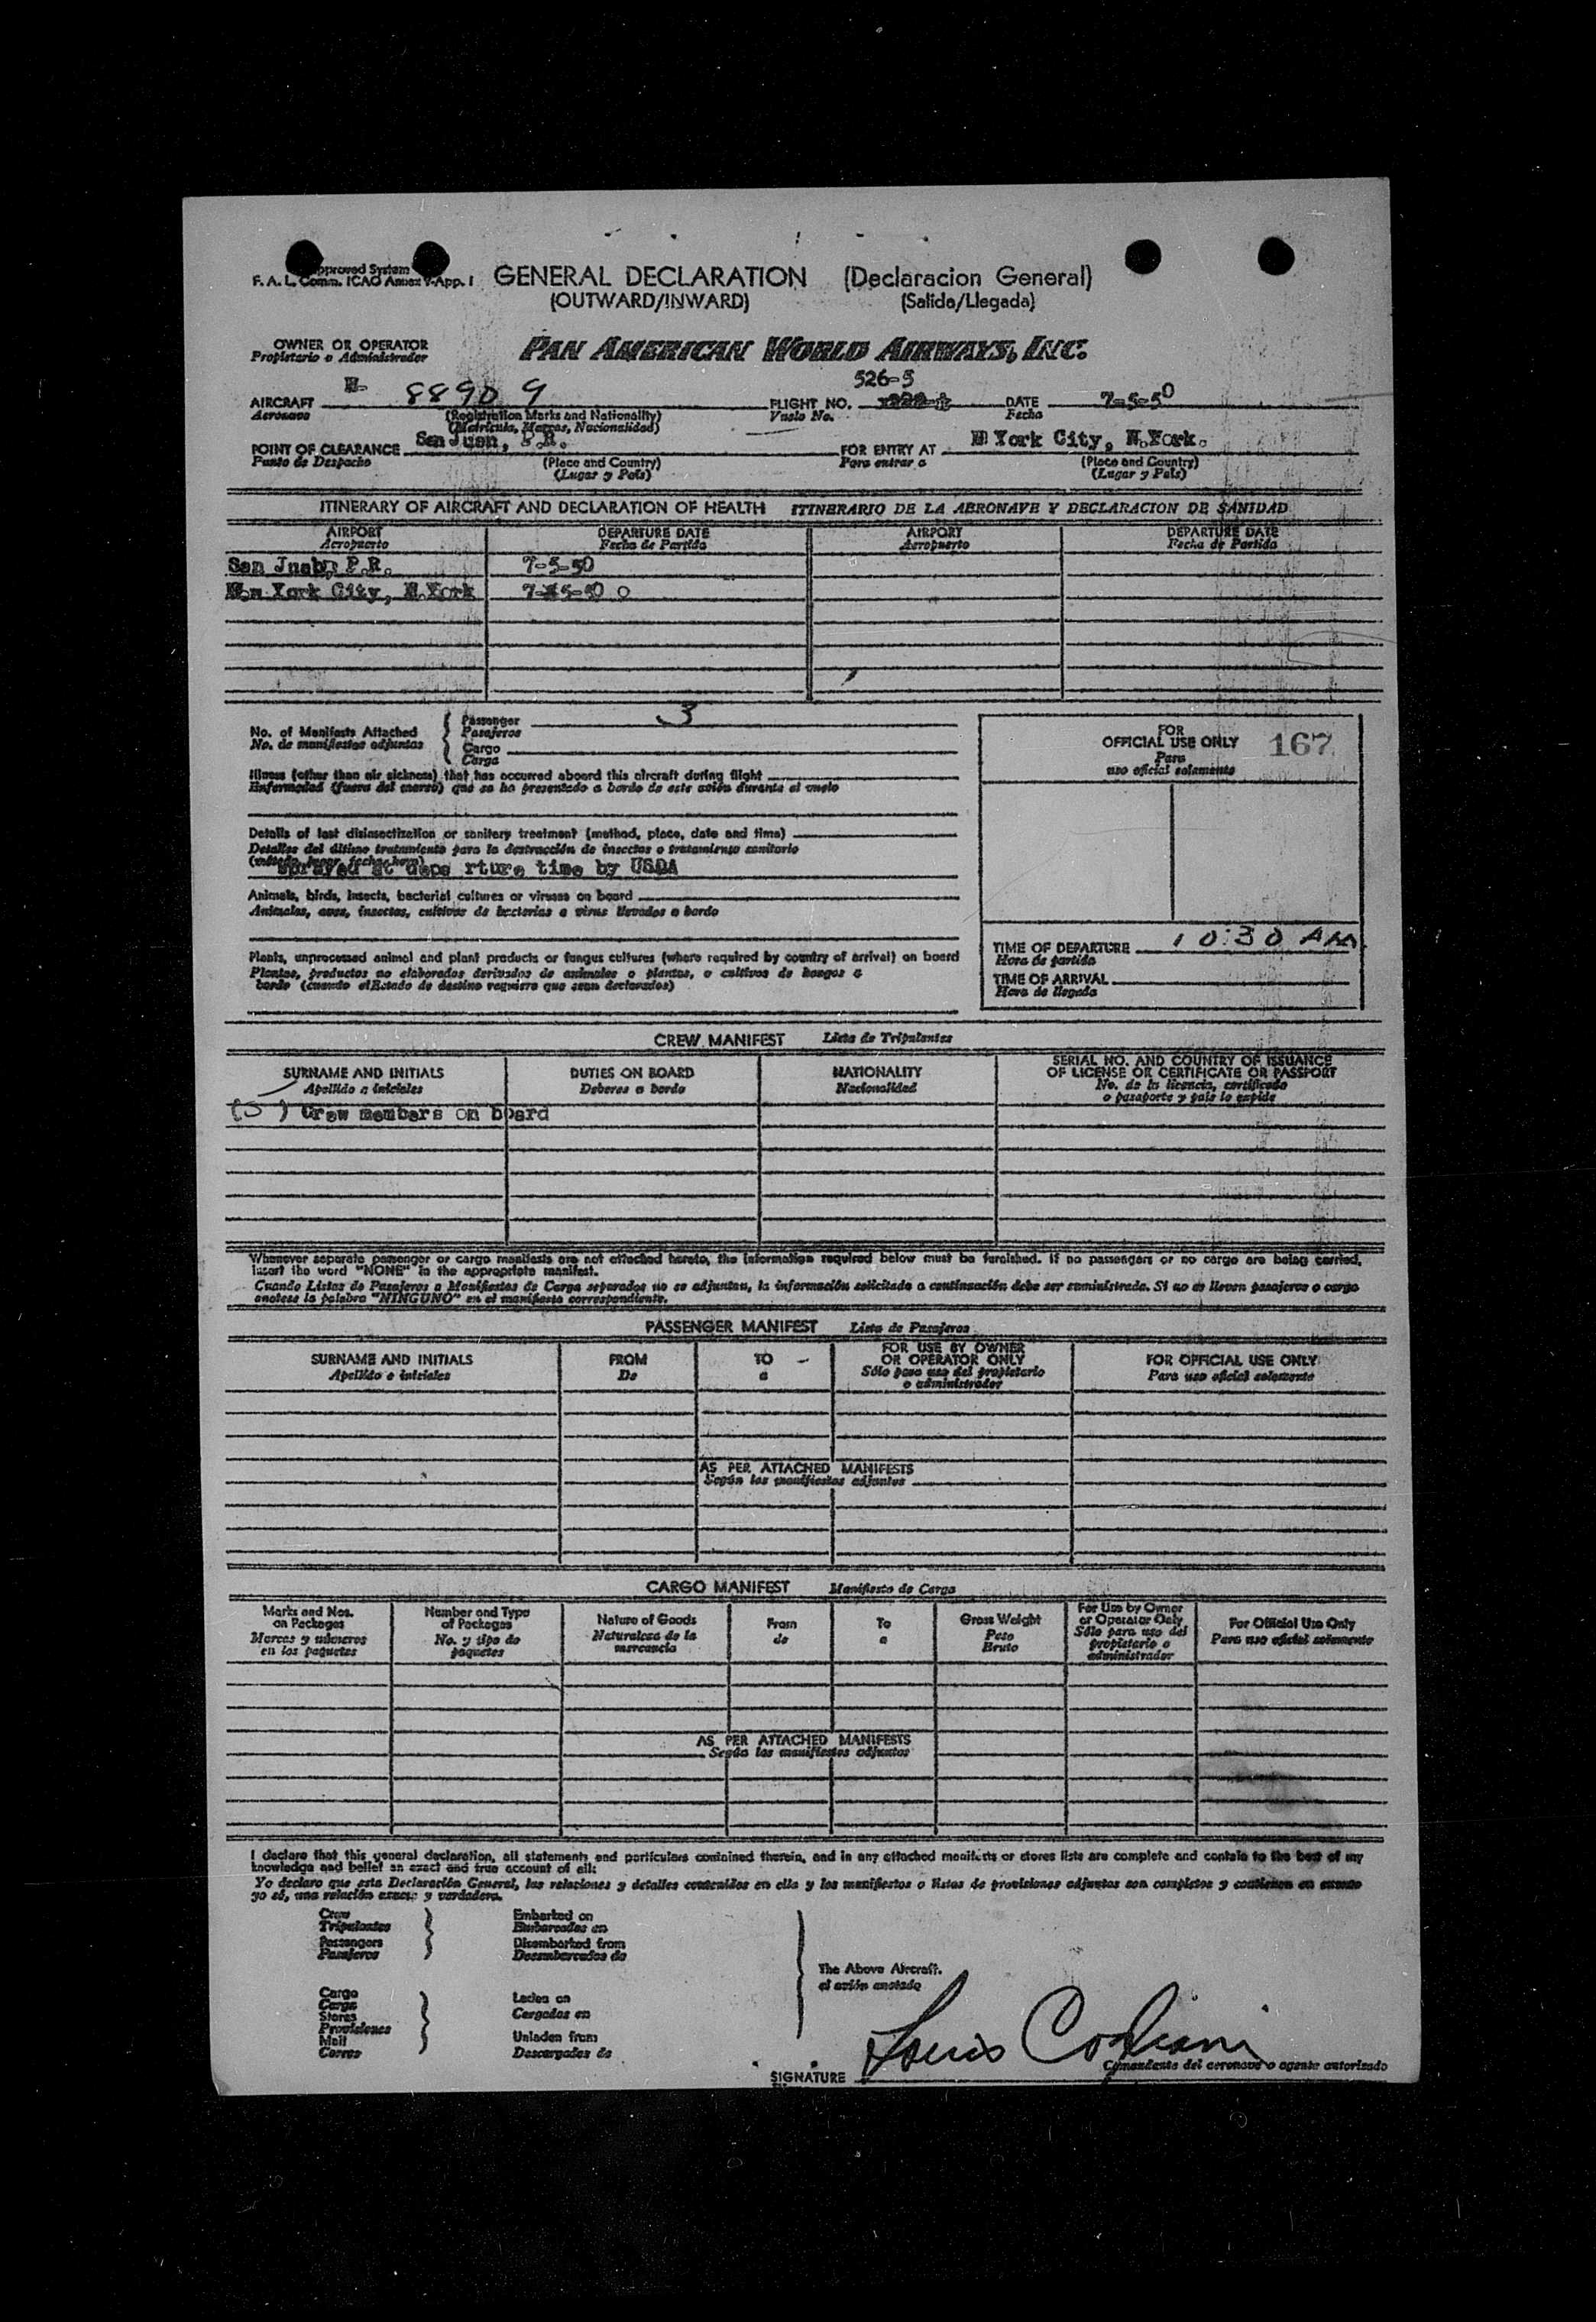 Approved System
F. A. L. Comm. ICAO Annex 9-App. I
GENERAL DECLARATION (Declaracion General)
(OUTWARD/INWARD) (Salida/Llegada)
OWNER OR OPERATOR
Propietario o Administrador
PAN AMERICAN WORLD AIRWAYS, INC.
526-5
AIRCRAFT N- 88909 FLIGHT NO. DATE 7-5-50
Aeronave (Registration Marks and Nationality) Vuelo No. Fecha
(Matricula, Marcas, Nacionalidad)
POINT OF CLEARANCE San Juan, P.R. FOR ENTRY AT N York City, N.York.
Punto de Despacho (Place and Country) Para entrar a (Place and Country)
(Lugar y País) (Lugar y País)
ITINERARY OF AIRCRAFT AND DECLARATION OF HEALTH ITINERARIO DE LA AERONAVE Y DECLARACION DE SANIDAD
AIRPORT DEPARTURE DATE AIRPORT DEPARTURE DATE
Aeropuerto Fecha de Partida Aeropuerto Fecha de Partida
San Juan, P.R. 7-5-50
New York City, N.York 7-5-50
No. of Manifests Attached
No. de manifiestos adjuntos
Passenger 3
Pasajeros
Cargo
Carga
FOR
OFFICIAL USE ONLY 167
Para
uso oficial solamente
Illness (other than air sickness) that has occurred aboard this aircraft during flight
Enfermedad (fuera del mareo) que se ha presentado a bordo de este avión durante el vuelo
Details of last disinsectization or sanitary treatment (method, place, date and time)
Detalles del último tratamiento para la destrucción de insectos o tratamiento sanitario
(método, lugar, fecha, hora)
Sprayed at depa rture time by USDA
Animals, birds, insects, bacterial cultures or viruses on board
Animales, aves, insectos, cultivos de bacterias o virus llevados a bordo
Plants, unprocessed animal and plant products or fungus cultures (where required by country of arrival) on board
Plantas, productos no elaborados derivados de animales o plantas, o cultivos de hongos a
bordo (cuando el Estado de destino requiere que sean declarados)
TIME OF DEPARTURE 10:30 AM
Hora de partida
TIME OF ARRIVAL
Hora de llegada
CREW MANIFEST Lista de Tripulantes
SURNAME AND INITIALS DUTIES ON BOARD NATIONALITY SERIAL NO. AND COUNTRY OF ISSUANCE
OF LICENSE OR CERTIFICATE OR PASSPORT
Apellido e iniciales Deberes a bordo Nacionalidad No. de la licencia, certificado
o pasaporte y país lo expide
(5) Crew members on board
Whenever separate passenger or cargo manifests are not attached hereto, the information required below must be furnished. If no passengers or no cargo are being carried,
insert the word "NONE" in the appropriate manifest.
Cuando Listas de Pasajeros o Manifiestos de Carga separados no se adjuntan, la información solicitada a continuación debe ser suministrada. Si no se llevan pasajeros o cargo
anotese la palabra "NINGUNO" en el manifiesto correspondiente.
PASSENGER MANIFEST Lista de Pasajeros
SURNAME AND INITIALS FROM TO FOR USE BY OWNER
OR OPERATOR ONLY FOR OFFICIAL USE ONLY
Apellido e iniciales De a Sólo para uso del propietario
o administrador Para uso oficial solamente
AS PER ATTACHED MANIFESTS
Según los manifiestos adjuntos
CARGO MANIFEST Manifiesto de Carga
Marks and Nos.
on Packages
Marcas y números
en los paquetes
Number and Type
of Packages
No. y tipo de
paquetes
Nature of Goods
Naturaleza de la
mercancía
From
de
To
a
Gross Weight
Peso
Bruto
For Use by Owner
or Operator Only
Sólo para uso del
propietario o
administrador
For Official Use Only
Para uso oficial solamente
AS PER ATTACHED MANIFESTS
Según los manifiestos adjuntos
I declare that this general declaration, all statements and particulars contained therein, and in any attached manifests or stores lists are complete and contain to the best of my
knowledge and belief an exact and true account of all:
Yo declaro que esta Declaración General, las relaciones y detalles contenidos en ella y los manifiestos o listas de provisiones adjuntos son completos y contienen en cuanto
yo sé, una relación exacta y verdadera.
Crew
Tripulantes
Passengers
Pasajeros
Embarked on
Embarcados en
Disembarked from
Desembarcados de
Cargo
Carga
Stores
Provisiones
Mail
Correo
Laden on
Cargados en
Unladen from
Descargados de
The Above Aircraft.
el avión anotado
SIGNATURE Louis Cogliani
Comandante del aeronave o agente autorizado